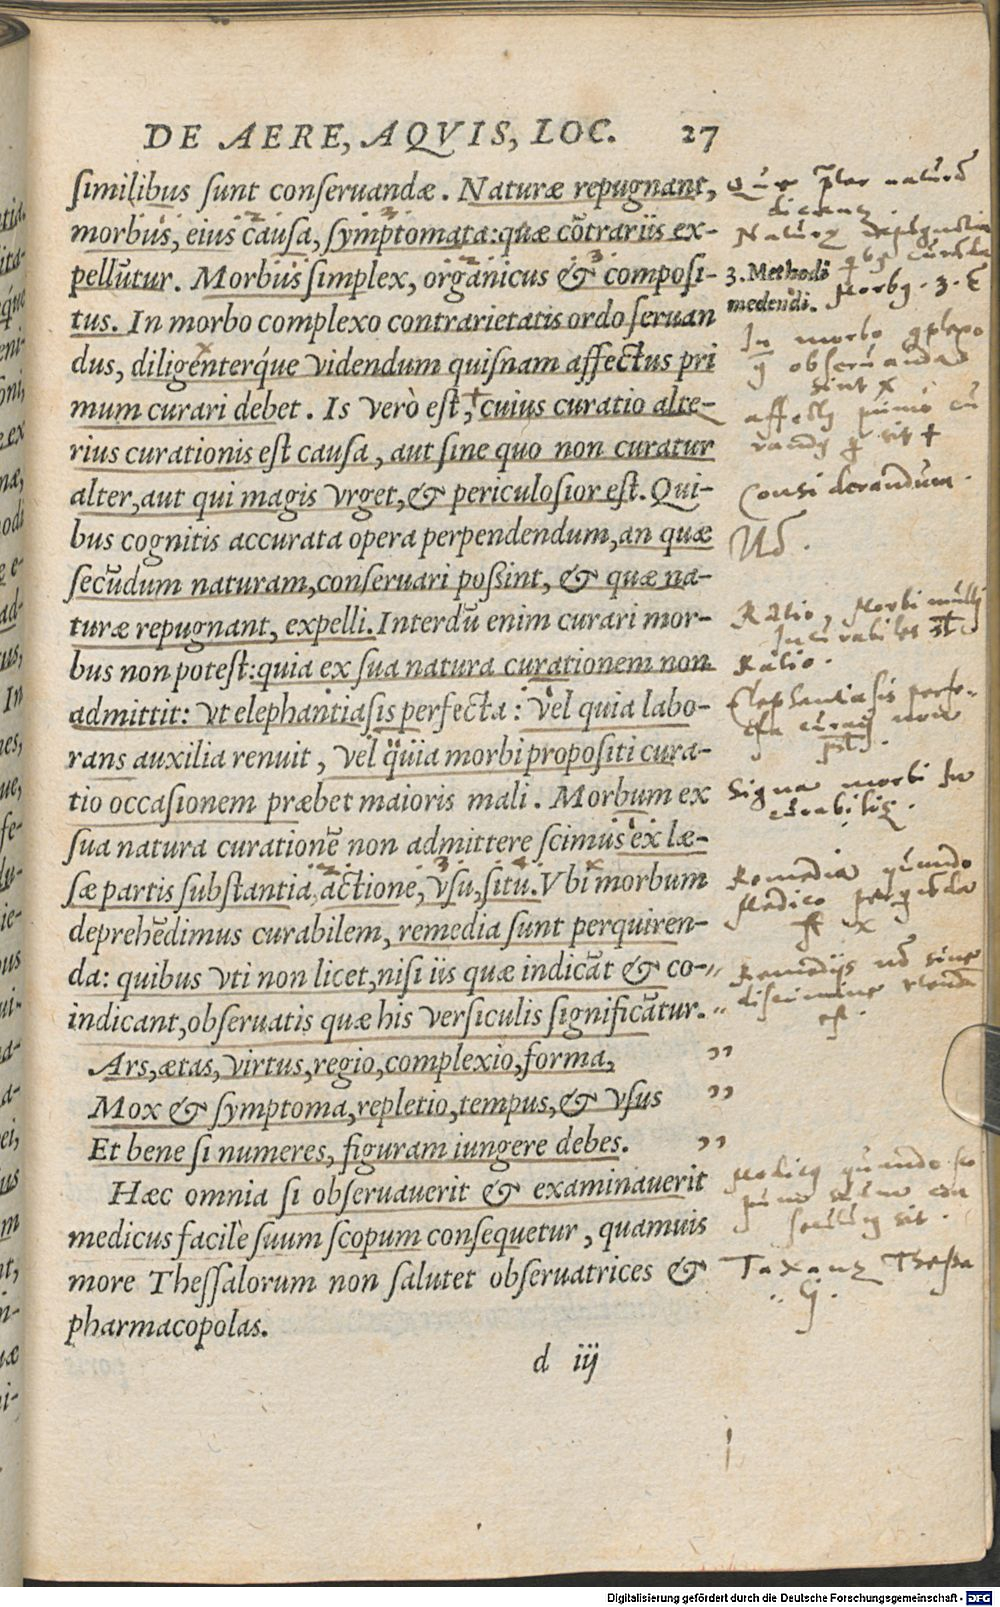 DE AERE, AQVIS, LOC. 27
similibus sunt conseruandæ. Naturæ repugnant,
morbus, eius causa, symptomata: quæ cōtrariis ex-
pellūtur. Morbus simplex, organicus & composi-
tus. In morbo complexo contrarietatis ordo seruan
dus, diligenterq́ue videndum quisnam affectus pri
mum curari debet. Is verò est, cuius curatio alte-
rius curationis est causa, aut sine quo non curatur
alter, aut qui magis vrget, & periculosior est. Qui-
bus cognitis accurata opera perpendendum, an quæ
secūdum naturam, conseruari possint, & quæ na-
turæ repugnant, expelli. Interdū enim curari mor-
bus non potest: quia ex sua natura curationem non
admittit: vt elephantiasis perfecta: vel quia labo-
rans auxilia renuit, vel quia morbi propositi cura-
tio occasionem præbet maioris mali. Morbum ex
sua natura curationē non admittere scimus ex læ-
sæ partis substantia, actione, vsu, situ. Vbi morbum
deprehēdimus curabilem, remedia sunt perquiren-
da: quibus vti non licet, nisi iis quæ indicāt & co- "
indicant, obseruatis quæ his versiculis significātur. "
Ars, ætas, virtus, regio, complexio, forma, "
Mox & symptoma, repletio, tempus, & vsus "
Et bene si numeres, figuram iungere debes. "
Hæc omnia si obseruauerit & examinauerit
medicus facilè suum scopum consequetur, quamuis
more Thessalorum non salutet obseruatrices &
pharmacopolas.
d iij
3. Methodi
medendi.
Morbq. 3. E
In morbo
obseruanda
sint x
sit +
Considerandum.
Ratio, Morbi multi
Incurabiles
Ratio.
Elephantiasis perfe-
non
Signa morbi In
curabilis.
Remedia quando
Medico
est x
Remedijs nō sine
discrimine
est.
Medicq quando sco
sit.
Taxantz Thessa
Digitalisierung gefördert durch die Deutsche Forschungsgemeinschaft - DFG